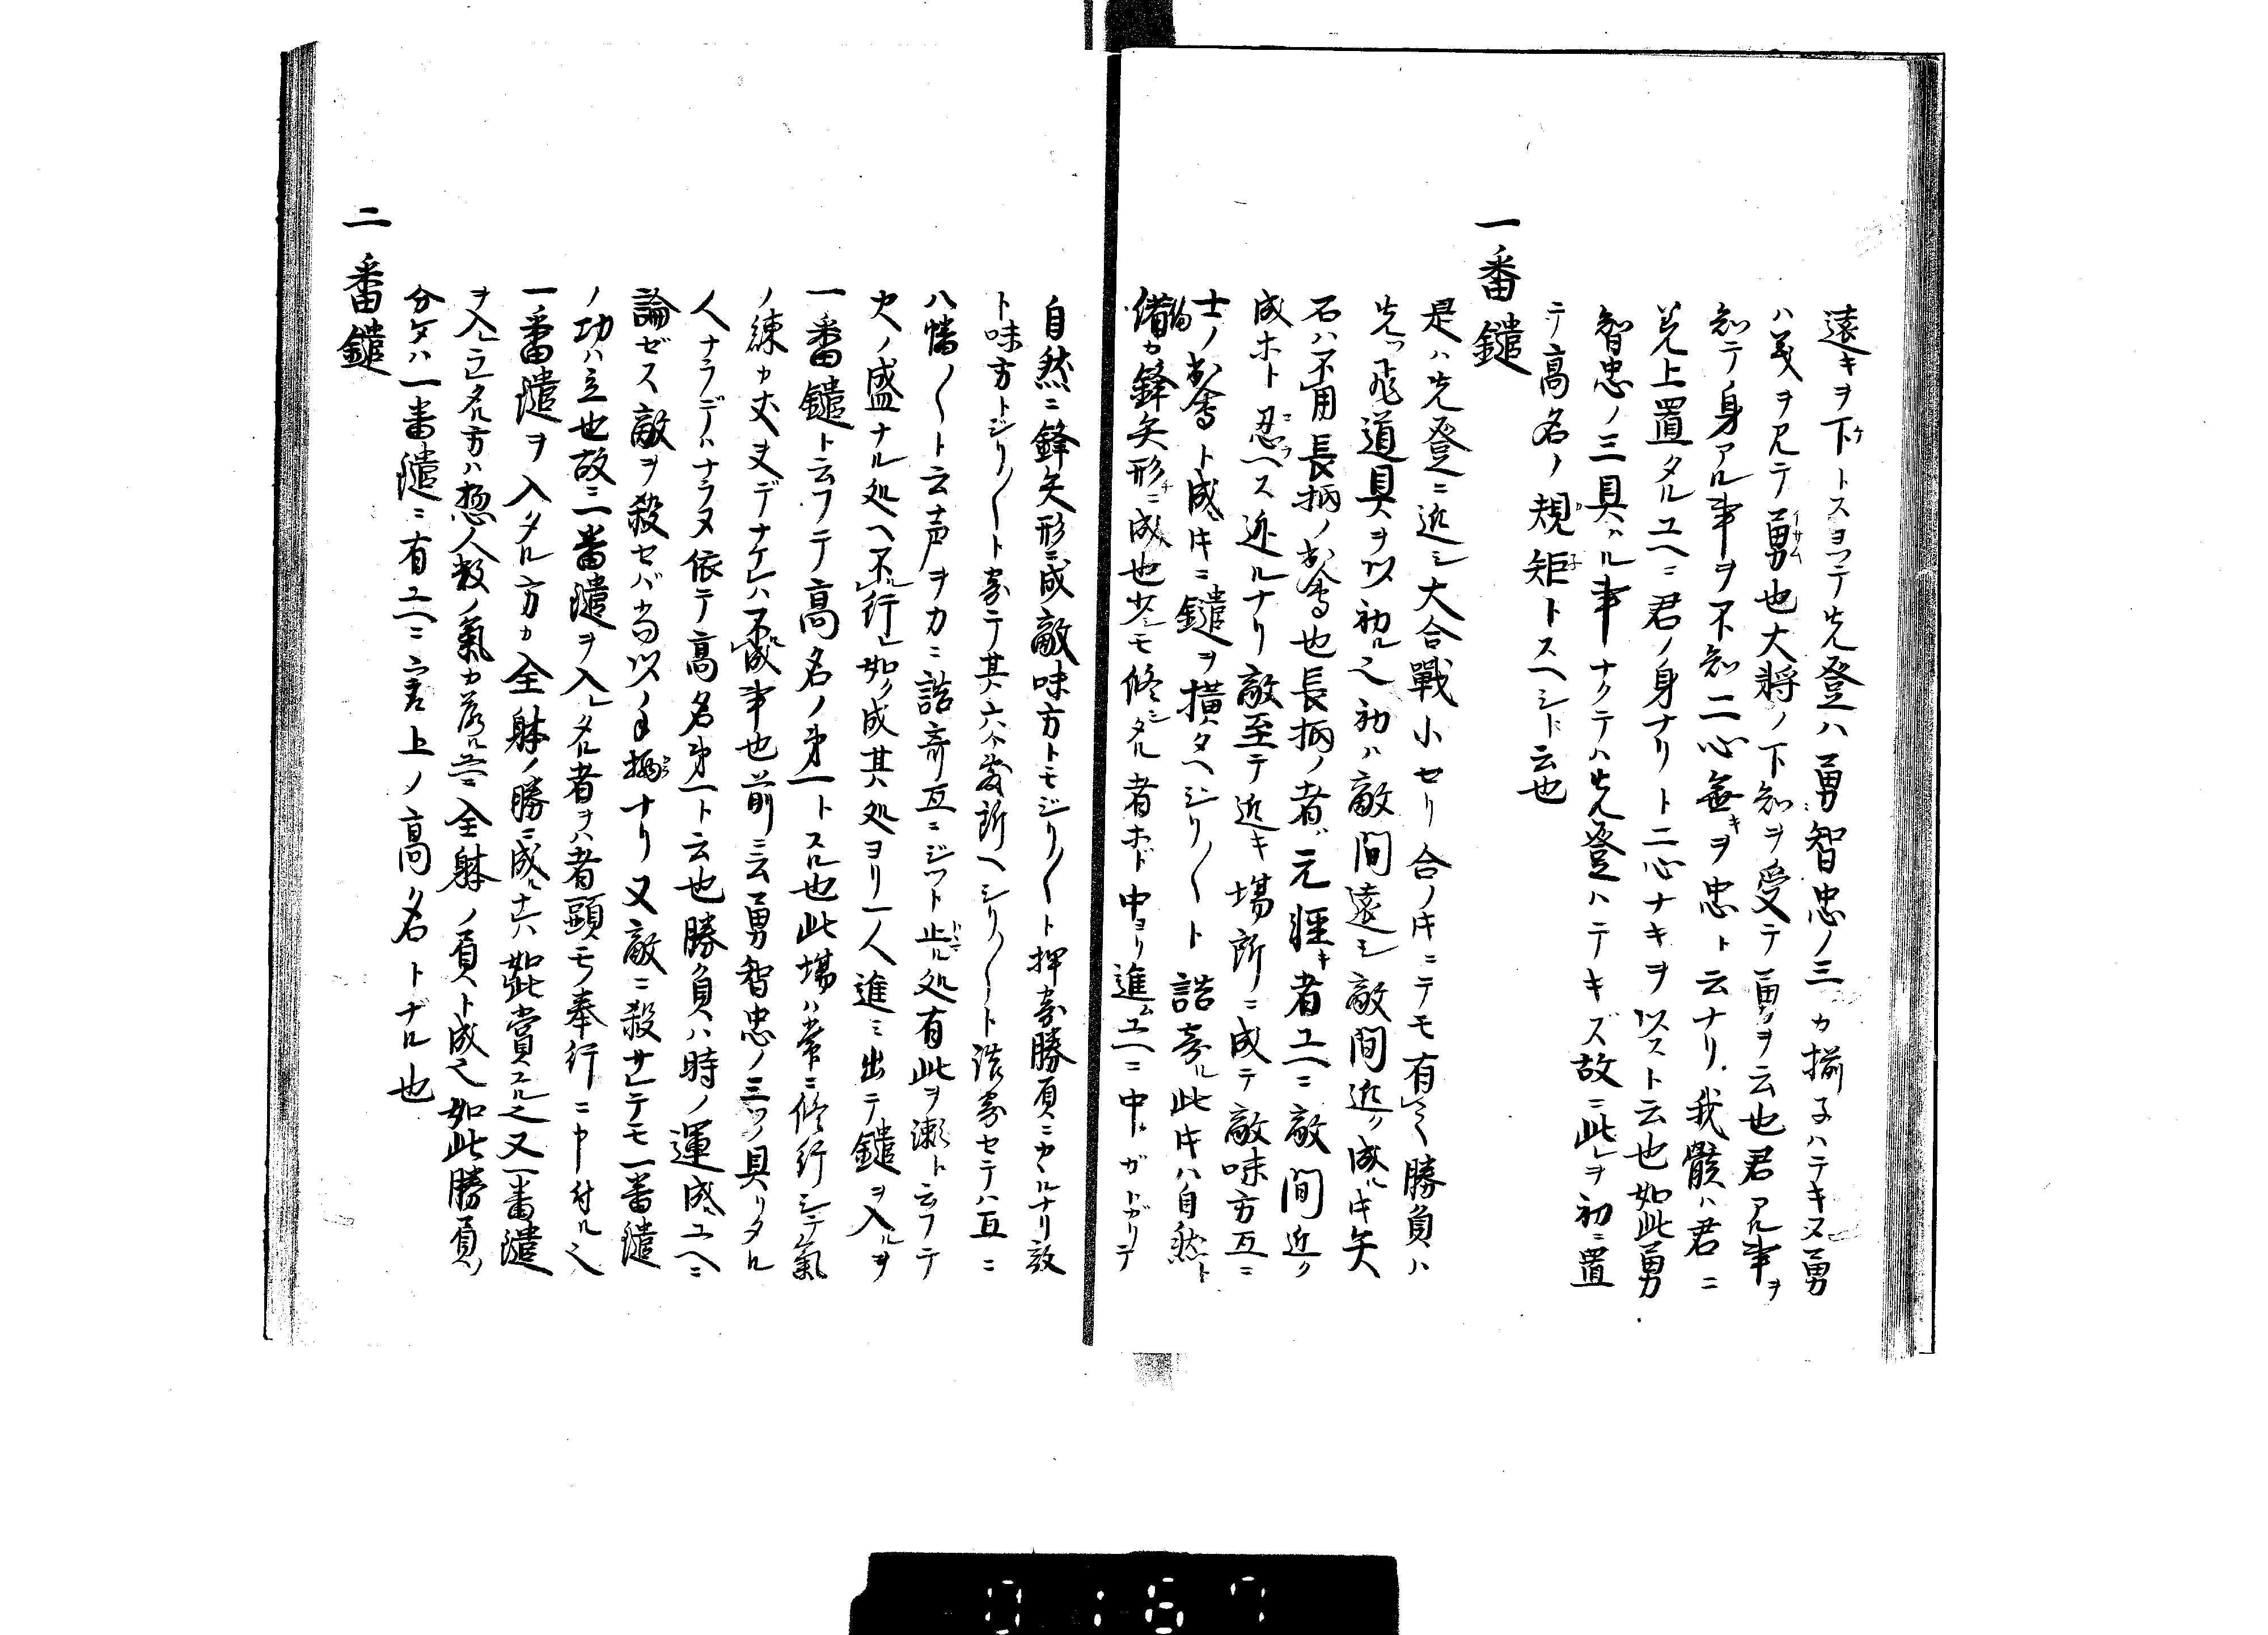 遠キヲ下トスヨツテ先登ハ勇智忠ノ三カ揃子ハテキヌ勇
ハ義ヲ見テ勇也大将ノ下知ヲ受テ勇ヲ云也君アル事ヲ
知テ身アル事ヲ不知二心無キヲ忠ト云ナリ我骸ハ君ニ
差上置タルユヘニ君ノ身ナリト二心ナキヲ以スト云也如此勇
智忠ノ三具ハル事ナクテハ先登ハテキズ故ニ此ヲ初ニ置
テ高名ノ規矩トスヘシト云也
一番鑓
是ハ先登ニ近シ大合戰小セリ合ノ时ニテモ有之勝負ハ
先ツ飛道具ヲ以初ル之初ハ敵間遠シ敵間近ク成ル时矢
石ハ不用長柄ノ出會也長柄ノ者ハ元軽キ者ユヘニ敵間近ク
成ホト忍ヘス近ルナリ敵至テ近キ場所ニ成テ敵味方互ニ
士ノ出會ト成时ニ鑓ヲ横タヘジリ〱ト詰寄ル此时ハ自然ト
備カ鋒矢形ニ成也少モ修シタル者ホド中ヨリ進ムユヘニ中ガトガリテ
自然ニ鋒矢形ニ成敵味方トモジリ〱ト押寄勝負ニカヽルナリ敵
ト味方トジリ〱ト寄テ其六ケ敷所ヘシリ〱ト詰寄セテハ互ニ
八幡〱ト云声ヲカニ詰寄互ニジツト止ル処有此ヲ瀬ト云フテ
火ノ盛ナル処ヘ不行如ク成其処ヨリ一人進ミ出テ鑓ヲ入ルヲ
一番鑓ト云フテ高名ノ第一トスル也此場ハ常ニ修行シテ氣
ノ練カ丈夫デナケレハ不成事也前ニ云勇智忠ノ三ツノ具リタル
人ナラデハナラヌ依テ高名第一ト云也勝負ハ時ノ運成ユヘニ
論ゼス敵ヲ殺セバ尚以ノ手柄ナリ又敵ニ殺サレテモ一番鑓
ノ功ハ立也故ニ一番鑓ヲ入レタル者ヲハ者頭モ奉行ニ申付ル之
一番鑓ヲ入タル方カ全躰ノ勝ニ成ル十六如此賞スル之又一番鑓
ヲ入レラレタル方ハ惣人数ノ氣カ奪ルユヘニ全躰ノ負ト成之如此勝負ノ
分ケハ一番鑓ニ有ユヘニ言上ノ高名トナル也
二番鑓